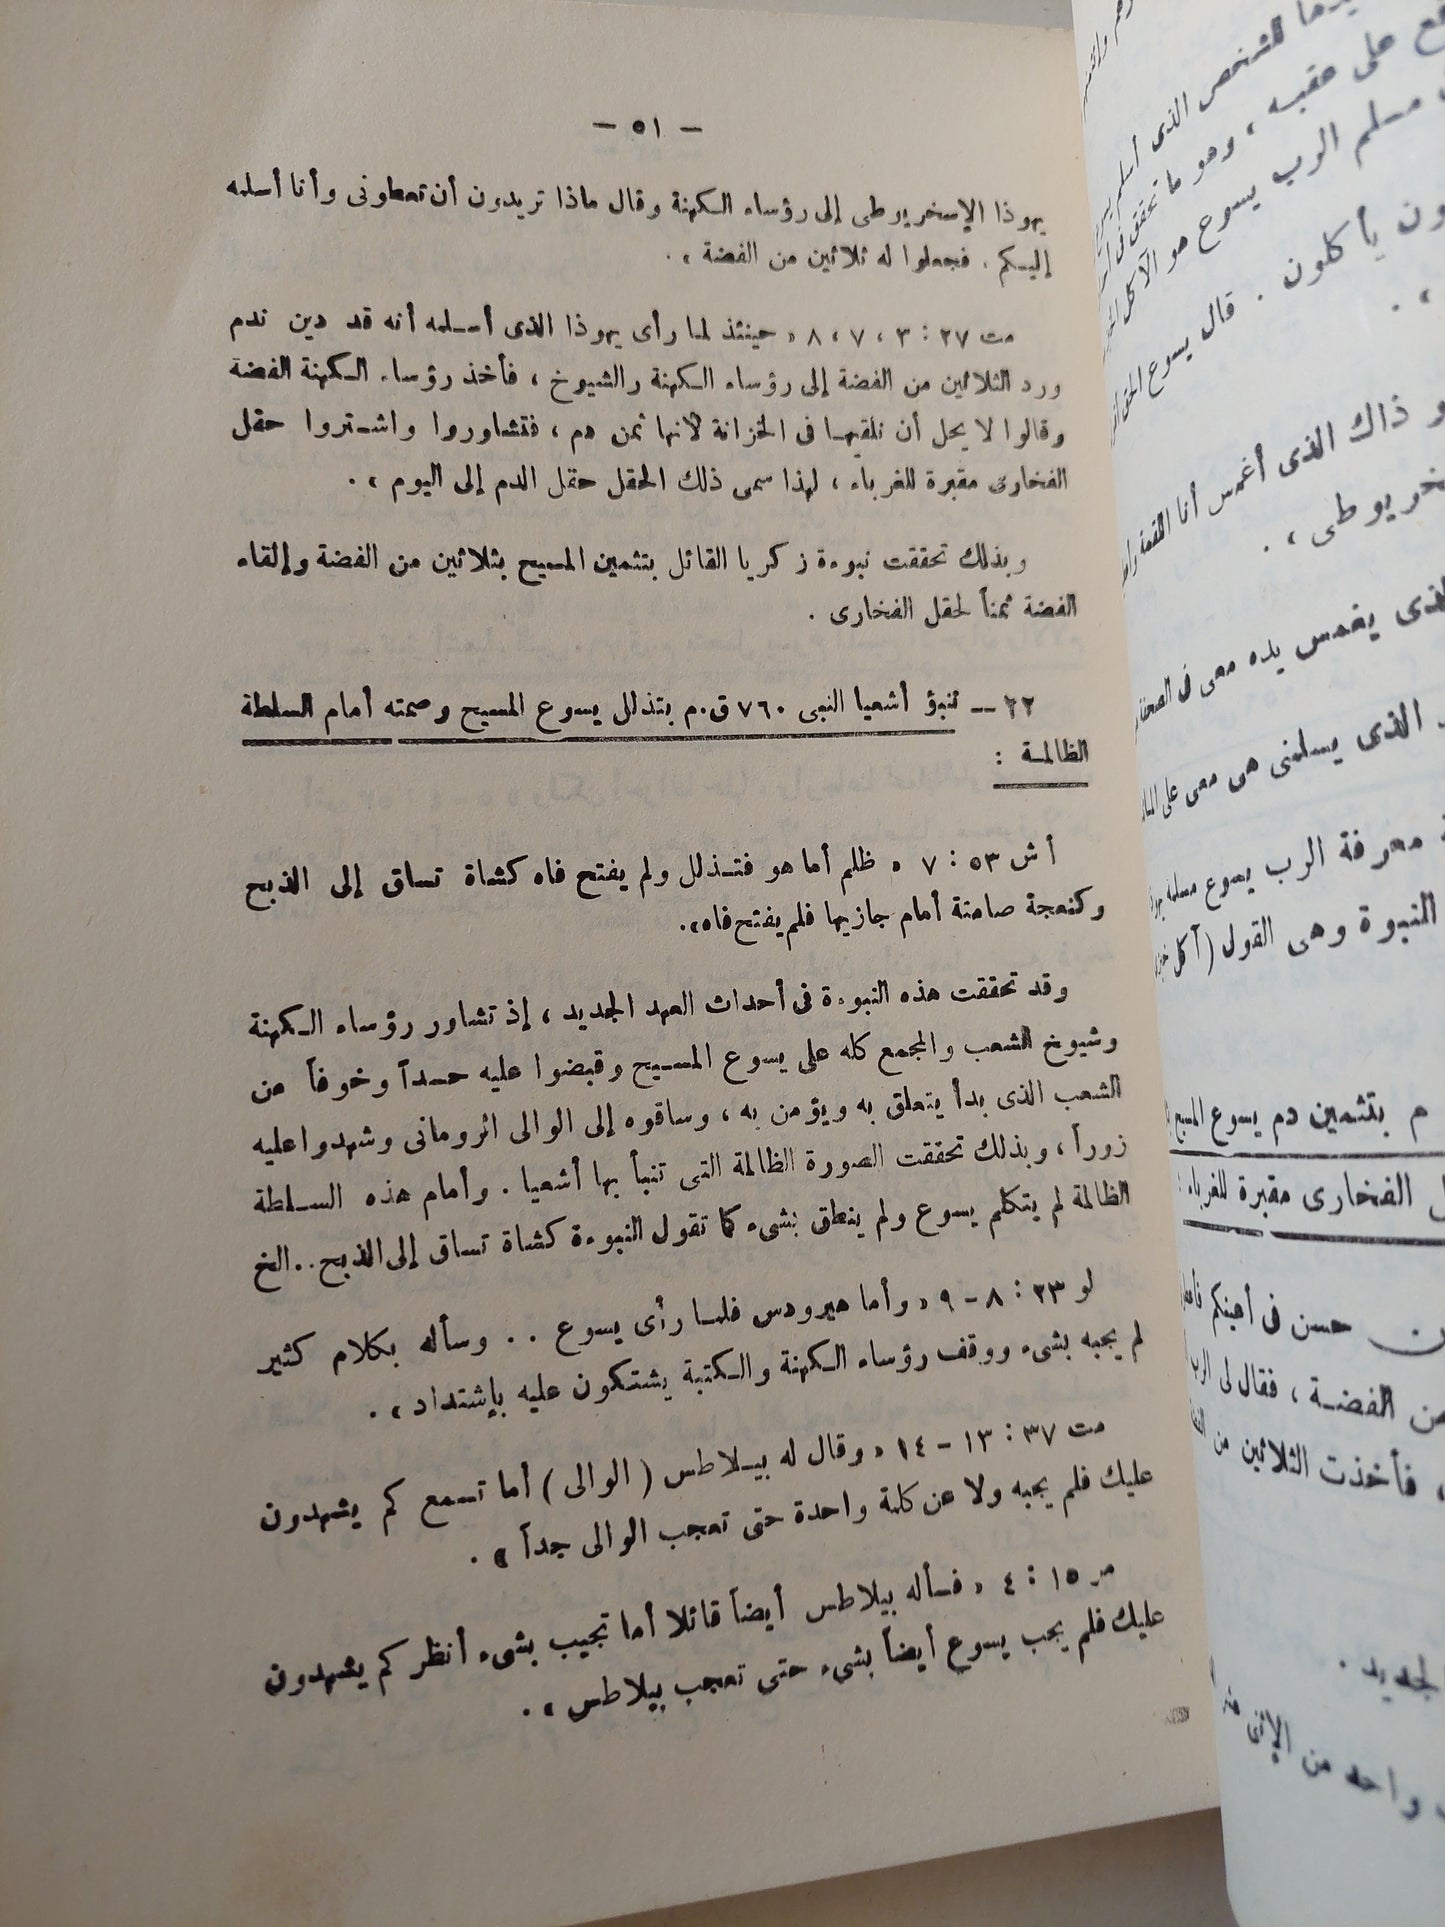 — ٥١ —
يهوذا الإسخريوطى إلى رؤساء الكهنة وقال ماذا تريدون أن تعطونى وأنا أسلمه
إليكم . فجعلوا له ثلاثين من الفضة » .
مت ٢٧ : ٣ ، ٧ ، ٨ « حينئذ لما رأى يهوذا الذى أسلمه أنه قد دين ندم
ورد الثلاثين من الفضة إلى رؤساء الكهنة والشيوخ ، فأخذ رؤساء الكهنة الفضة
وقالوا لا يحل أن نلقيها فى الخزانة لأنها ثمن دم ، فتشاوروا واشتروا حقل
الفخارى مقبرة للغرباء ، لهذا سمى ذلك الحقل حقل الدم إلى اليوم » .
وبذلك تحققت نبوءة زكريا القائل بتثمين المسيح بثلاثين من الفضة وإلقاء
الفضة ثمناً لحقل الفخارى .
٢٢ — تنبؤ أشعيا النبى ٧٦٠ ق.م بتذلل يسوع المسيح وصمته أمام السلطة
الظالمة :
أش ٥٣ : ٧ « ظلم أما هو فتذلل ولم يفتح فاه كشاة تساق إلى الذبح
وكنعجة صامتة أمام جازيها فلم يفتح فاه» .
وقد تحققت هذه النبوءة فى أحداث العهد الجديد ، إذ تشاور رؤساء الكهنة
وشيوخ الشعب والمجمع كله على يسوع المسيح وقبضوا عليه حسداً وخوفاً من
الشعب الذى بدأ يتعلق به ويؤمن به ، وساقوه إلى الوالى الرومانى وشهدوا عليه
زوراً ، وبذلك تحققت الصورة الظالمة التى تنبأ بها أشعيا . وأمام هذه السلطة
الظالمة لم يتكلم يسوع ولم ينطق بشىء كما تقول النبوءة كشاة تساق إلى الذبح . . الخ
لو ٢٣ : ٨ – ٩ « وأما هيرودس فلما رأى يسوع . . وسأله بكلام كثير
لم يجبه بشىء ووقف رؤساء الكهنة والكتبة يشتكون عليه بإشتداد » .
مت ٣٧ : ١٣ – ١٤ « وقال له بيلاطس ( الوالى ) أما تسمع كم يشهدون
عليك فلم يجبه ولا عن كلمة واحدة حتى تعجب الوالى جداً » .
مر ١٥ : ٤ « فسأله بيلاطس أيضاً قائلا أما تجيب بشىء أنظر كم يشهدون
عليك فلم يجب يسوع أيضاً بشىء حتى تعجب بيلاطس » .
للشخص الذى أسلم
على عقبه ، وهو ما تحقق فى
مسلم الرب يسوع هو الآكل
يأكلون . قال يسوع
ذاك الذى أغمس أنا اللقمة
يغمس يده معى فى
الذى يسلمنى هى معى على
معرفة الرب يسوع مسلمه
النبوة وهى القول (آكل
م بتثمين دم يسوع المسيح
الفخارى مقبرة للغرباء :
حسن فى أعينكم
من الفضة ، فقال لى الرب
، فأخذت الثلاثين من
واحد من الإثنى